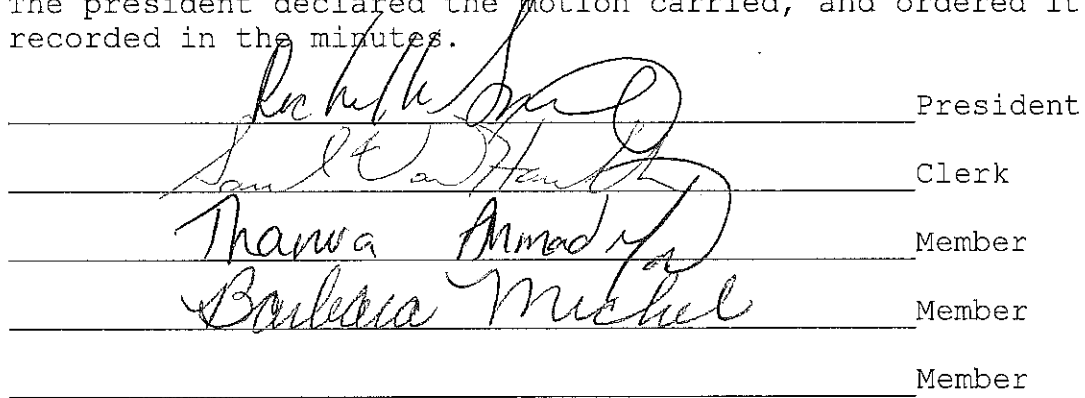 The president declared the motion carried, and ordered it
recorded in the minutes.
President
Clerk
Thanwa Ahmad Member
Barbara Michel Member
Member